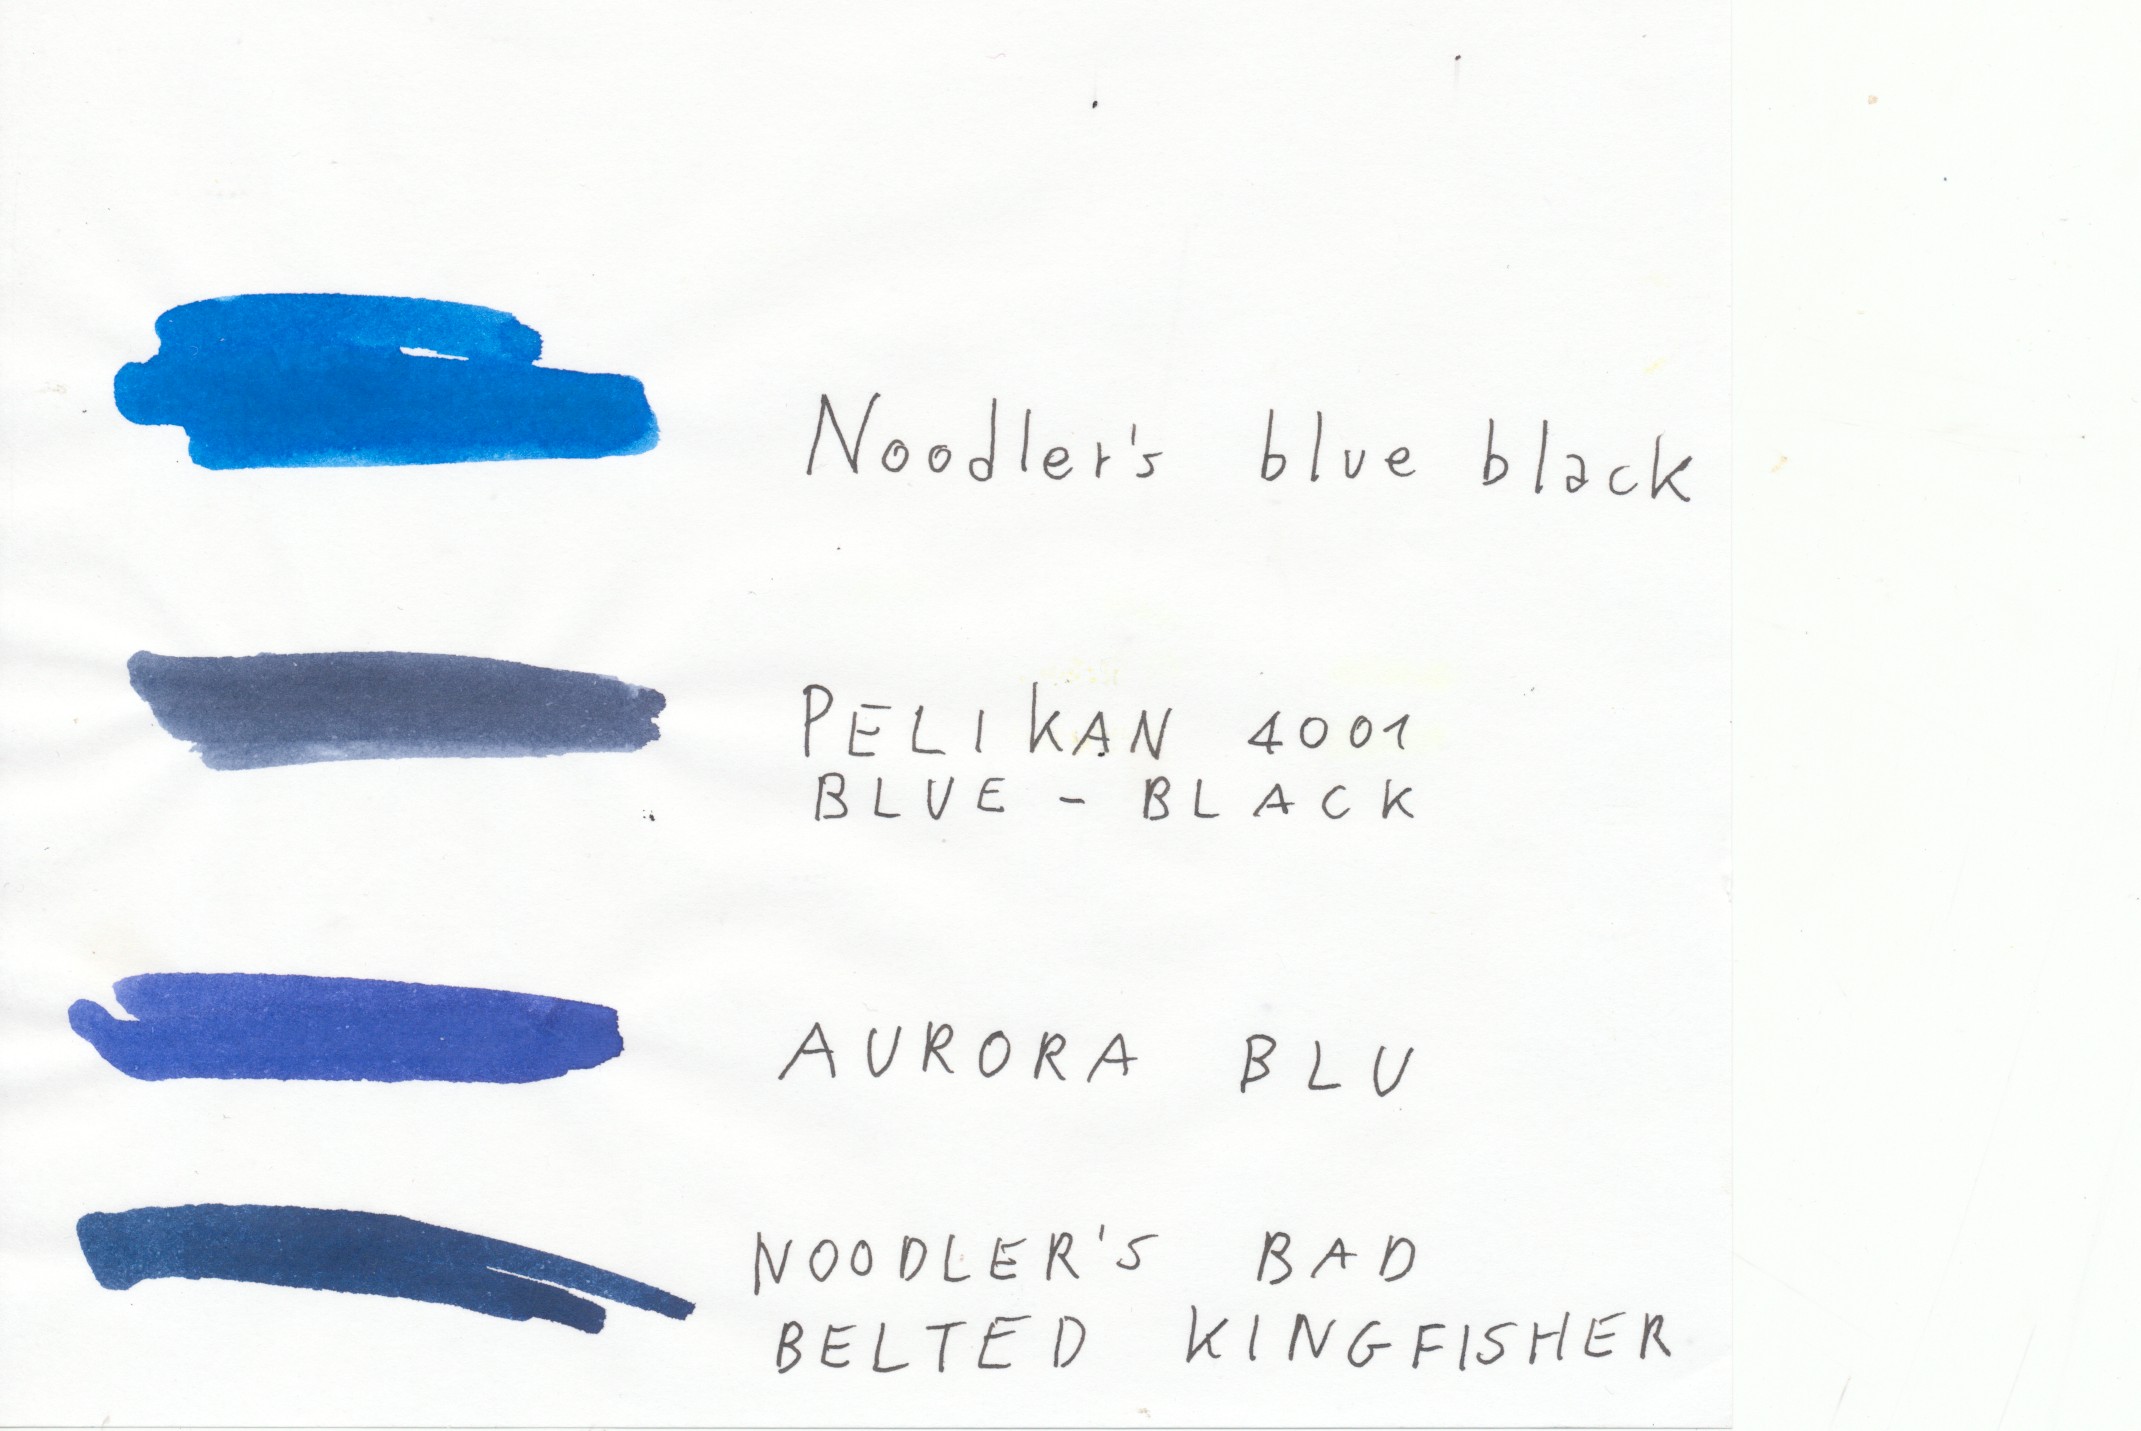 Noodler's blue black
PELIKAN 4001
BLUE - BLACK
AURORA BLU
NOODLER'S BAD
BELTED KINGFISHER